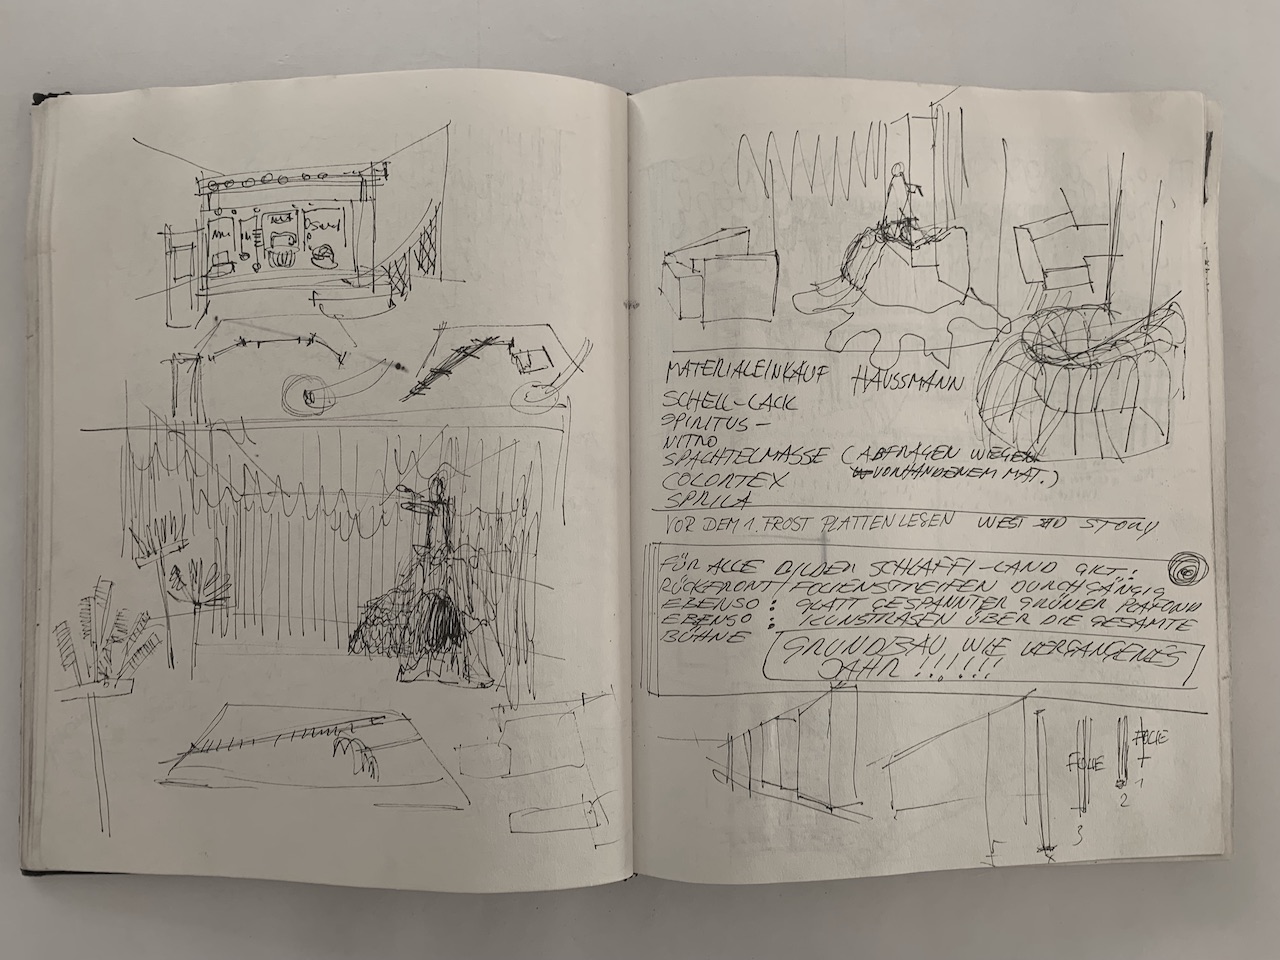 MATERIALEINKAUF HAUSSMANN
SCHELL-LACK
SPIRITUS-
NITRO
SPACHTELMASSE (ABFRAGEN WEGEN
VORHANDENEM MAT.)
COLORTEX
SPRILA
VOR DEM 1. FROST PLATTEN LEGEN WEST STORY
FÜR ALLE BILDER SCHLAFFI-LAND GILT:
RÜCKFRONT/FOLIENSTREIFEN DURCHGÄNGIG
EBENSO: GLATT GESPANNTER GRÜNER PLAFOND
EBENSO: KUNSTRASEN ÜBER DIE GESAMTE
BÜHNE
GRUNDBAU WIE VERGANGENES
JAHR !!!!!!
FOLIE
3
2
FOLIE
+
1